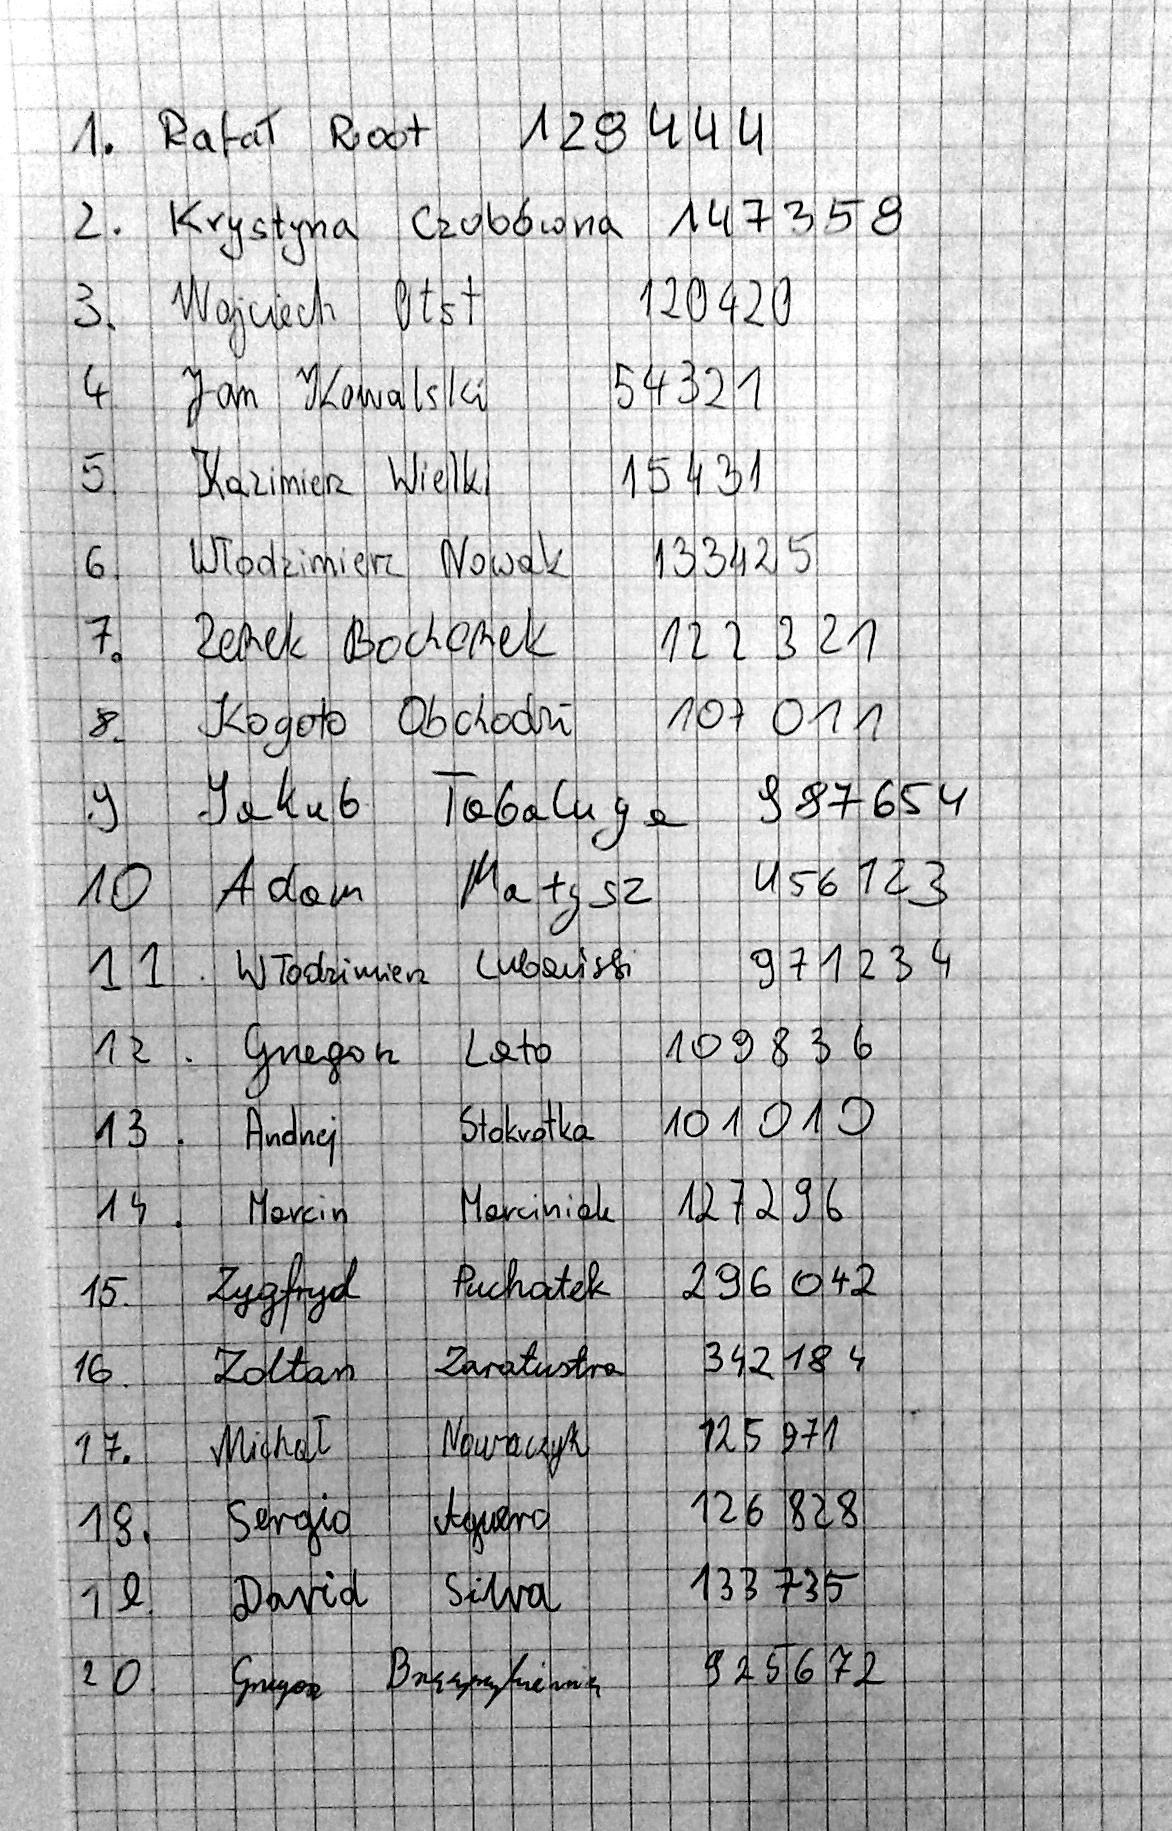 1. Rafał Root 129444
2. Krystyna Czubówna 147358
3. Wojciech Otst 120420
4 Jan Kowalski 54321
5. Kazimierz Wielki 15431
6. Włodzimierz Nowak 133425
7. Zenek Bochenek 122321
8. Kogoto Obchodzi 107011
9 Jakub Tabaluga 987654
10 Adam Małysz 456123
11. Włodzimierz Lubański 971234
12. Grzegorz Lato 109836
13. Andrzej Stokrotka 101010
14. Marcin Marciniak 127296
15. Zygfryd Puchatek 296042
16. Zoltan Zaratustra 342184
17. Michał Nowaczyk 125971
18. Sergio Aguero 126828
19. David Silva 133735
20. Grzegorz 925672